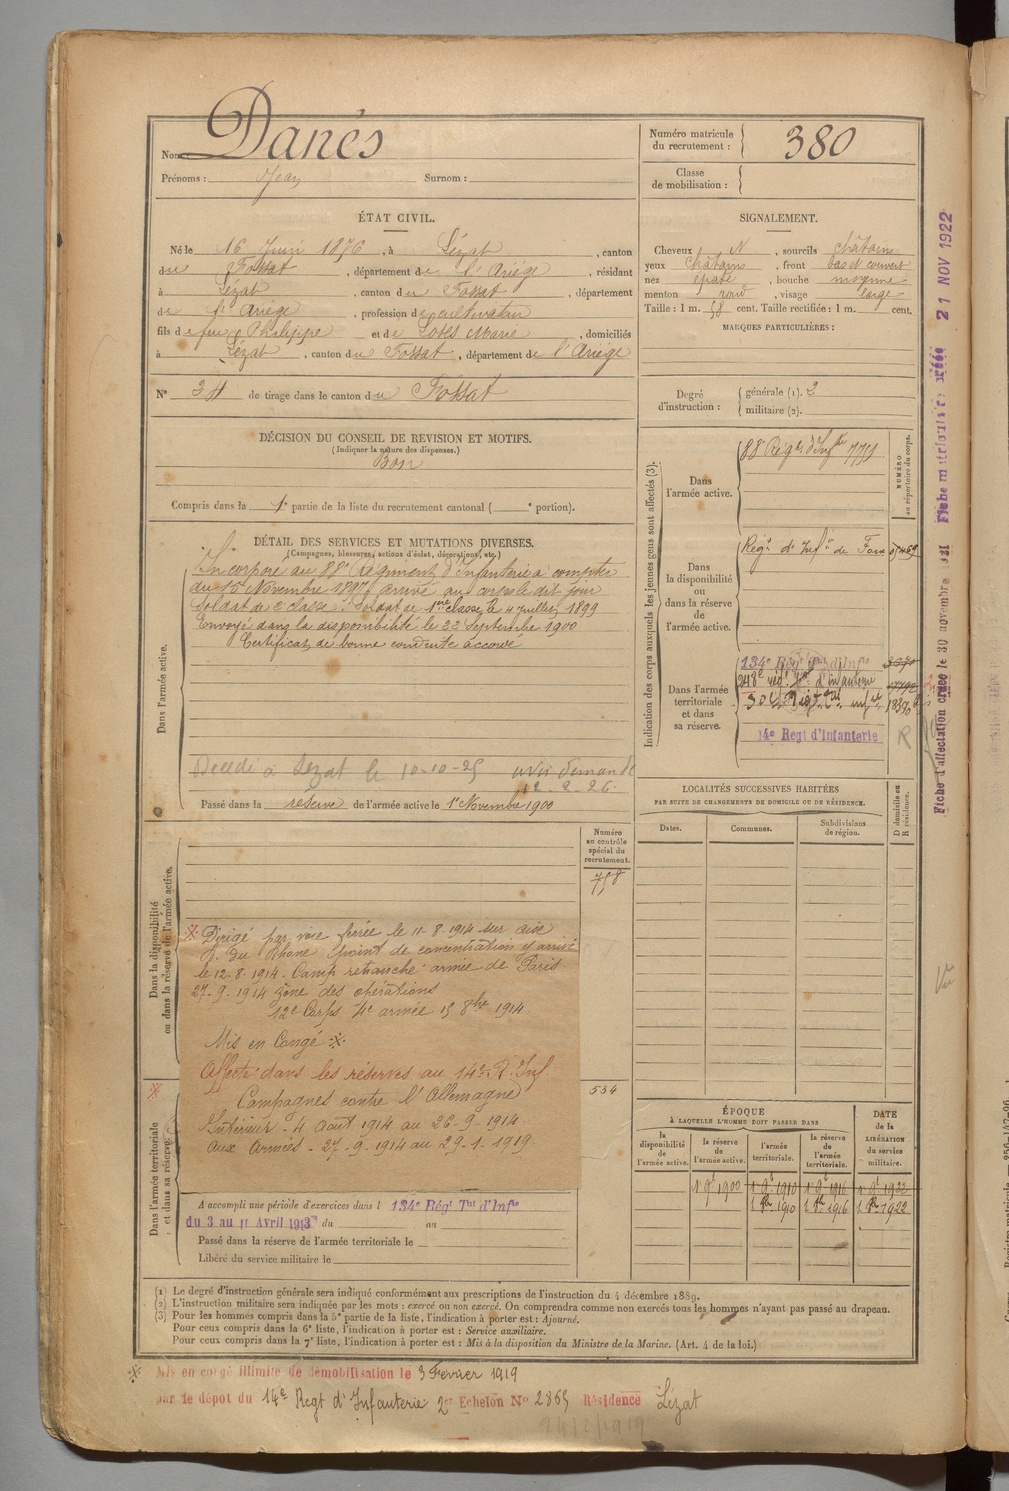 Nom Danés
Prénoms : Jean Surnom :
Numéro matricule
du recrutement : 380
Classe
de mobilisation :
ÉTAT CIVIL.
Né le 16 Juin 1876, à Lézat, canton
du Fossat, département de l'Ariége, résidant
à Lézat, canton du Fossat, département
de l'Ariége, profession de cultivateur
fils de feu Philippe et de Marie, domiciliés
à Lézat, canton du Fossat, département de l'Ariége
N° 34 de tirage dans le canton du Fossat
SIGNALEMENT.
Cheveux N, sourcils châtains
yeux châtains, front bas et couvert
nez épaté, bouche moyenne
menton rond, visage large
Taille : 1 m. 58 cent. Taille rectifiée : 1 m. cent.
MARQUES PARTICULIÈRES :
Degré
d'instruction :
générale (1). 2
militaire (2).
DÉCISION DU CONSEIL DE REVISION ET MOTIFS.
(Indiquer la nature des dispenses.)
Bon
Compris dans la 1e partie de la liste du recrutement cantonal ( e portion).
DÉTAIL DES SERVICES ET MUTATIONS DIVERSES.
(Campagnes, blessures, actions d'éclat, décorations, etc.)
Dans l'armée active.
Incorporé au 88e Régiment d'Infanterie à compter
du 15 Novembre 1897, arrivé au corps le dit jour
Soldat de 2e classe. Soldat de 1ère classe le 4 Juillet 1899
Envoyé dans la disponibilité le 22 Septembre 1900
Certificat de bonne conduite accordé
Décédé à Lézat le 10-10-25 avis demandé
12-2-26.
Passé dans la réserve de l'armée active le 1er Novembre 1900
Indication des corps auxquels les jeunes gens sont affectés (3).
NUMÉRO
au répertoire du corps.
Dans
l'armée active.
88e Régt d'Infie
Dans
la disponibilité
ou
dans la réserve
de
l'armée active.
Regt d'Infie de Foix
Dans l'armée
territoriale
et dans
sa réserve.
134e Régt Tal d'Infie
14e Regt d'Infanterie
R
Fiche d'affectation créée le 30 novembre Fiche matriculaire créée 21 NOV 1922
LOCALITÉS SUCCESSIVES HABITÉES
PAR SUITE DE CHANGEMENTS DE DOMICILE OU DE RÉSIDENCE.
Dates.
Communes.
Subdivisions
de région.
D domicile ou
R résidence.
Vu
Numéro
au contrôle
spécial du
recrutement.
758
Dans la disponibilité
ou dans la réserve de l'armée active.
Dirigé par voie ferrée le 11-8-1914 sur aire
R. du Rhone point de concentration y arrivé
le 12-8-1914. Camp retranché armée de Paris
27-9-1914 zône des opérations
12e Corps 4e armée 15 8bre 1914
Mis en Congé
Affecté dans les réserves au 14e R. Inf.
Campagnes contre l'Allemagne
Intérieur - 4 Aout 1914 au 26-9-1914
aux Armées - 27-9-1914 au 29-1-1919.
534
Dans l'armée territoriale
et dans sa réserve.
A accompli une période d'exercices dans l 134e Régt Tal d'Infie
du 3 au 11 Avril 1913 du au
Passé dans la réserve de l'armée territoriale le
Libéré du service militaire le
ÉPOQUE
À LAQUELLE L'HOMME DOIT PASSER DANS
la
disponibilité
de
l'armée active.
la réserve
de
l'armée active.
l'armée
territoriale.
la réserve
de
l'armée
territoriale.
DATE
de la
LIBÉRATION
du service
militaire.
1er 9bre 1900 1er 9bre 1910 1er 9bre 1916 1er 9bre 1922
1 8bre 1910 1 8bre 1916 1 8bre 1922
(1) Le degré d'instruction générale sera indiqué conformément aux prescriptions de l'instruction du 4 décembre 1889.
(2) L'instruction militaire sera indiquée par les mots : exercé ou non exercé. On comprendra comme non exercés tous les hommes n'ayant pas passé au drapeau.
(3) Pour les hommes compris dans la 5e partie de la liste, l'indication à porter est : Ajourné.
Pour ceux compris dans la 6e liste, l'indication à porter est : Service auxiliaire.
Pour ceux compris dans la 7e liste, l'indication à porter est : Mis à la disposition du Ministre de la Marine. (Art. 4 de la loi.)
Mis en congé illimité de démobilisation le 3 Fevrier 1919
par le dépot du 14e Regt d'Infanterie 2e Echelon No 2865 Résidence Lézat
24/2/1919